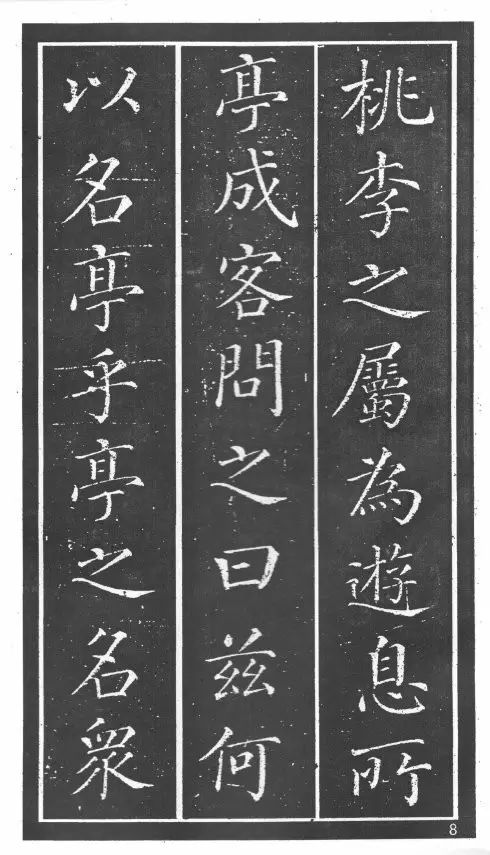 桃李之屬為遊息所
亭成客問之曰兹何
以名亭乎亭之名衆
8